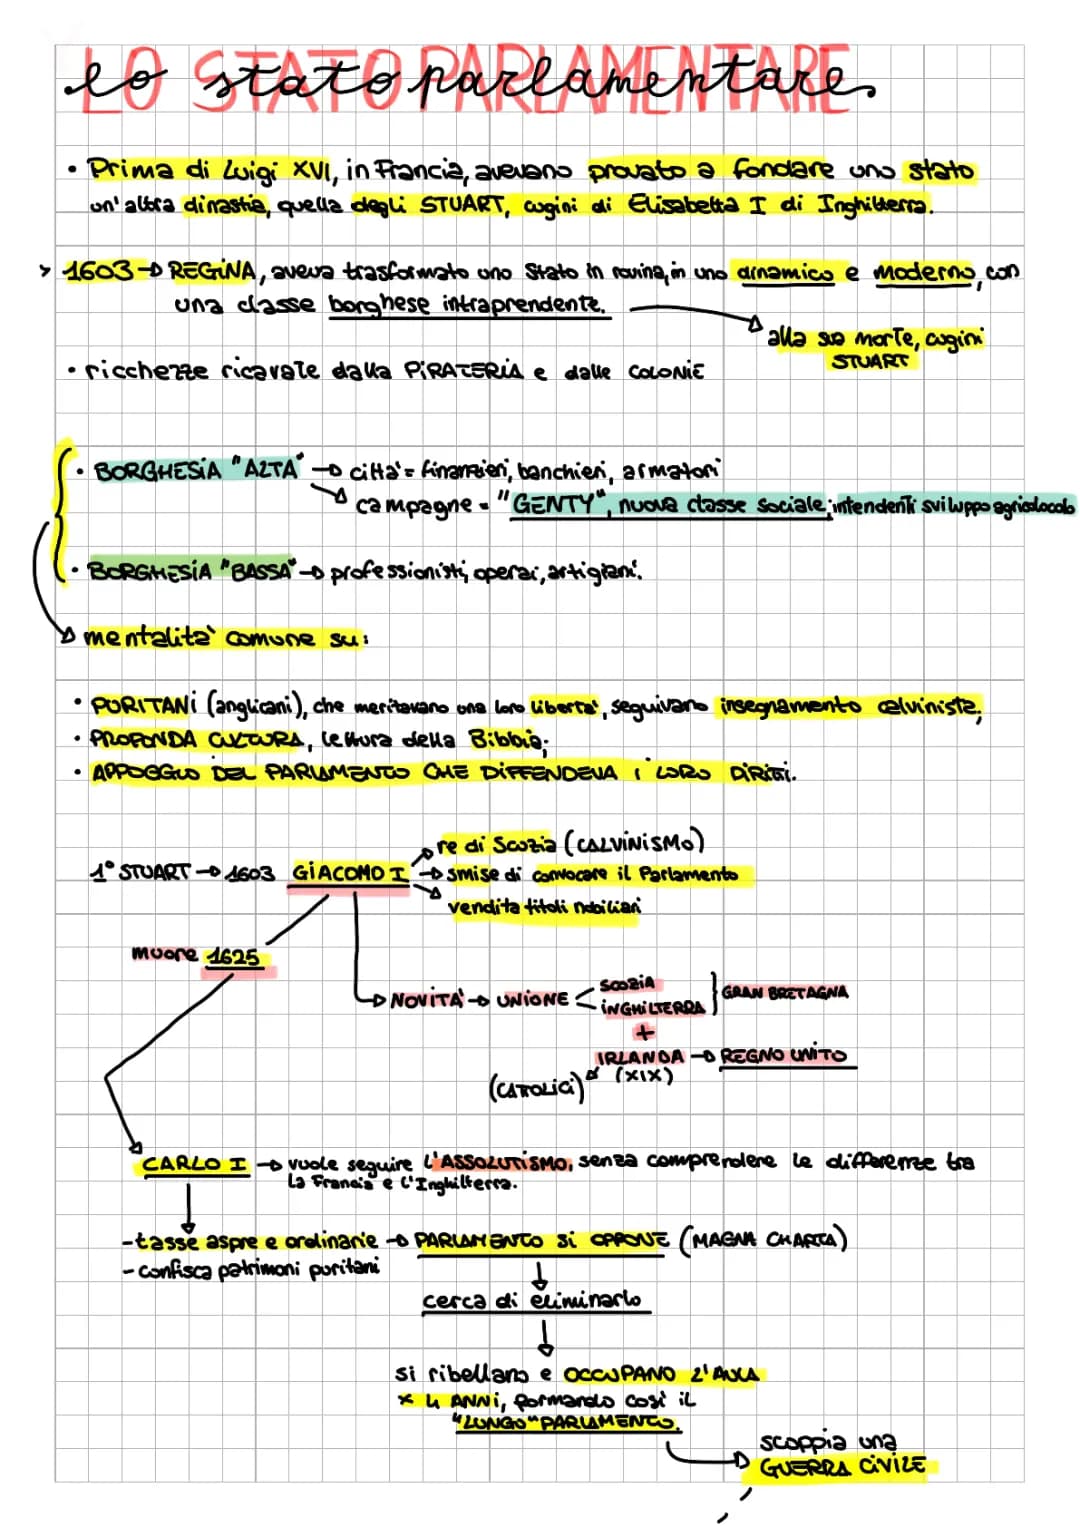 lo stato parlamentare
LO STATO PARLAMENTARE
• Prima di Luigi XVI, in Francia, avevano provato a fondare uno stato
un'altra dinastia, quella degli STUART, cugini di Elisabetta I di Inghilterra.
> 1603 → REGINA, aveva trasformato uno Stato in rovina, in uno dinamico e moderno, con
una classe borghese intraprendente.
alla sua morte, cugini
STUART
• ricchezze ricavate dalla PIRATERIA e dalle COLONIE
• BORGHESIA "ALTA" → città = finanzieri, banchieri, armatori
campagne = "GENTY", nuova classe sociale; intendenti sviluppo agricolo
• BORGHESIA "BASSA" → professionisti, operai, artigiani.
mentalità comune su:
• PURITANI (anglicani), che meritavano una loro libertà, seguivano insegnamento calvinista;
• PROFONDA CULTURA, lettura della Bibbia;
• APPOGGIO DEL PARLAMENTO CHE DIFFENDEVA I LORO DIRITTI.
re di Scozia (CALVINISMO)
1° STUART → 1603 GIACOMO I → smise di convocare il Parlamento
vendita titoli nobiliari
muore 1625
NOVITA' → UNIONE
SCOZIA
INGHILTERRA
GRAN BRETAGNA
+
IRLANDA → REGNO UNITO
(CATTOLICI) (XIX)
CARLO I → vuole seguire L'ASSOLUTISMO, senza comprendere le differenze tra
la Francia e l'Inghilterra.
- tasse aspre e ordinarie → PARLAMENTO SI OPPONE (MAGNA CHARTA)
- confisca patrimoni puritani
cerca di eliminarlo
si ribellano e OCCUPANO L'AULA
x 4 ANNI, formando così il
"LUNGO" PARLAMENTO.
scoppia una
GUERRA CIVILE